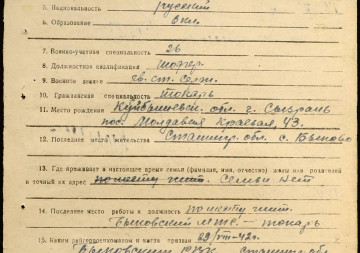 5. Национальность русский
6. Образование 8 кл.
7. Военно-учетная специальность 26
8. Должностная квалификация шофер
9. Военное звание гв. ст. серж.
10. Гражданская специальность токарь
11. Место рождения Куйбышевск. обл. г. Сызрань
пос. Молдавья Краевая, 43.
12. Последнее место жительства Сталингр. обл. с. Быково
13. Где проживает в настоящее время семья (фамилия, имя, отчество) жены или родителей
и точный их адрес по месту жит. Семьи нет
14. Последнее место работы и должность по месту жит.
Быковский МТС - токарь
15. Каким райгорвоенкоматом и когда призван 29/VIII-42г.
Быковским РВК Сталингр. обл.